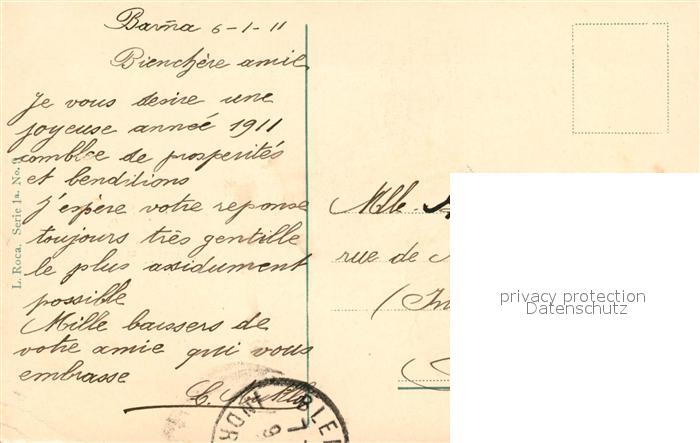 Barña 6-1-11
Bienchère amie
Je vous desire une
joyeuse année 1911
comblee de prosperités
et benditions
J'espère votre reponse
toujours très gentille
le plus assidument
possible
Mille baissers de
votre amie qui vous
embrasse
L. Roca. Serie 1a. No. 9
Mlle
rue de
privacy protection
Datenschutz